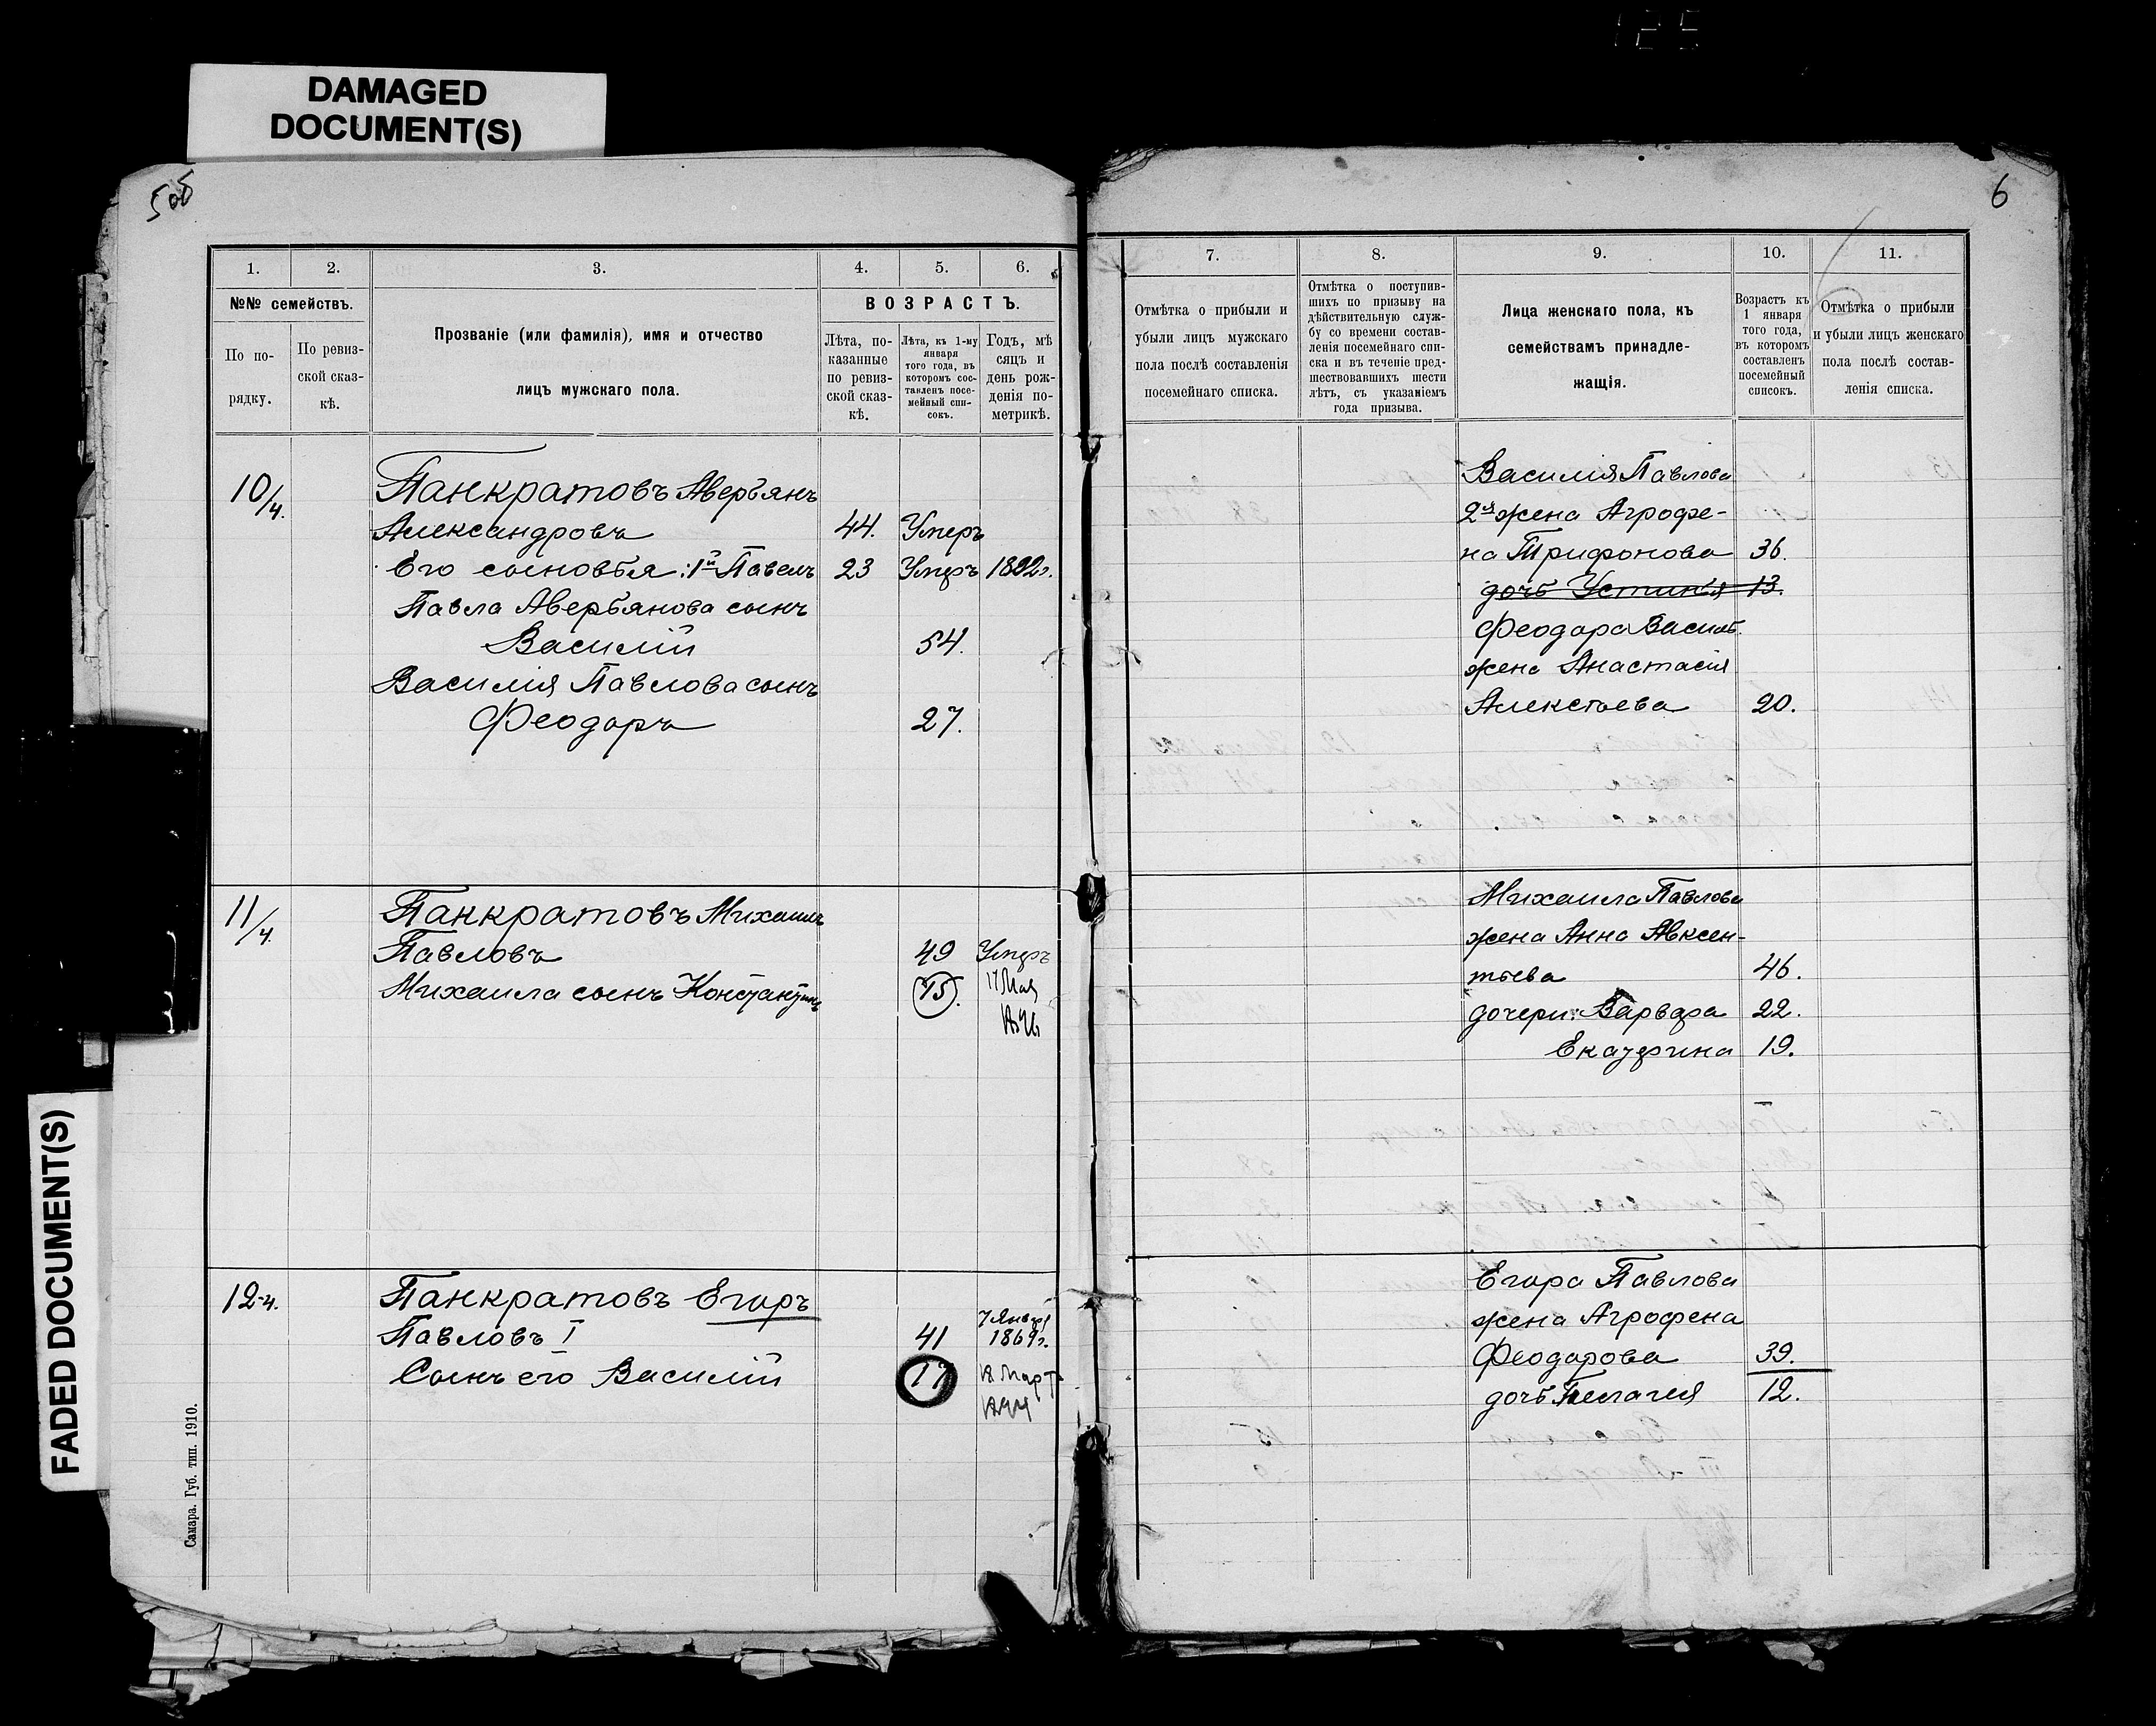 125
DAMAGED
DOCUMENT(S)
5об
1. 2. 3. 4. 5. 6.
№№ семействъ.
По по-
рядку.
По ревиз-
ской сказ-
кѣ.
Прозваніе (или фамилія), имя и отчество
лицъ мужскаго пола.
ВОЗРАСТЪ.
Лѣта, по-
казанные
по ревиз-
ской сказ-
кѣ.
Лѣта, къ 1-му
января
того года, въ
которомъ сос-
тавленъ посе-
мейный спи-
сокъ.
Годъ, мѣ
сяцъ и
день рож-
денія по-
метрикѣ.
10/4. Панкратовъ Аверьянъ
Александровъ 44. Умеръ
Его сыновья: 1й Павелъ 23 Умеръ 1892г.
Павла Аверьянова сынъ
Василій 54.
Василія Павлова сынъ
Феодоръ 27.
11/4. Панкратовъ Михаилъ
Павловъ 49 Умеръ
Михаила сынъ Константинъ 15. 17 Мая
12-4. Панкратовъ Егоръ
Павловъ I 41 7 Января 1869г.
Сынъ его Василій 17 18 Март
Самара. Губ. тип. 1910.
FADED DOCUMENT(S)
6
7. 8. 9. 10. 11.
Отмѣтка о прибыли и
убыли лицъ мужскаго
пола послѣ составленія
посемейнаго списка.
Отмѣтка о поступив-
шихъ по призыву на
дѣйствительную служ-
бу со времени состав-
ленія посемейнаго спи-
ска и въ теченіе пред-
шествовавшихъ шести
лѣтъ, съ указаніемъ
года призыва.
Лица женскаго пола, къ
семействамъ принадле-
жащія.
Возрастъ къ
1 января
того года,
въ которомъ
составленъ
посемейный
списокъ.
Отмѣтка о прибыли
и убыли лицъ женскаго
пола послѣ состав-
ленія списка.
Василія Павлова
2я жена Агрофе-
на Трифонова 36.
дочь Устинья 13.
Феодора Васил.
жена Анастасія
Алексѣева 20.
Михаила Павлова
жена Анна Авксен-
тьева 46.
дочери: Варвара 22.
Екатерина 19.
Егора Павлова
жена Агрофена
Феодорова 39.
дочь Пелагея 12.